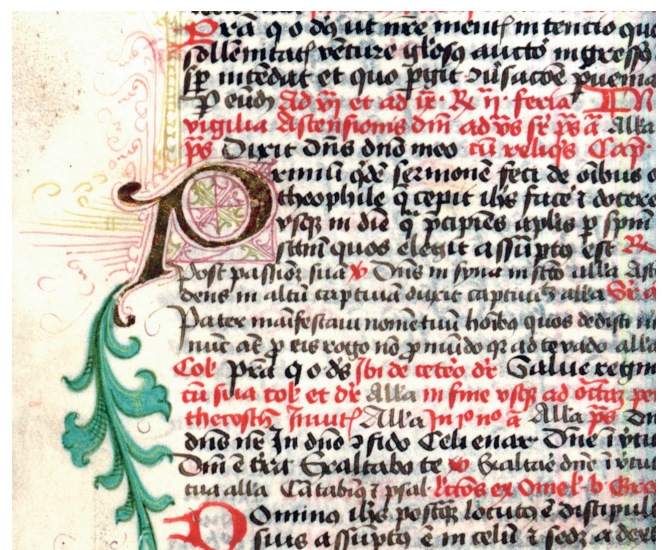 Prã q o ds ut nr̃e mentꝭ intencio quo
sollẽnitatꝭ vẽture gl'oso auctor ingresso
sp intẽdat et quo ꝑgit
ꝑ eũdẽ Ad vj et ad ix R nj feria IN
vigilia Ascensionis dni ad vs sr ps ã Alla
ps Dixit dns dno meo cũ reliqs Cap
Primũ qdẽ sermonẽ feci de oibus o
theophile q̃ cepit ihs facẽ ⁊ docere
vsqꝫ in diẽ q̃ p̃cipiẽs aplis ꝑ spm
sctũm quos elegit assũptꝰ est R
Post passioꝫ suã v Dns in syna in scto alla Asc
dens in altũ captiuã duxit captiuit alla Sr a
Pater manifestaui nomẽ tuũ hoibꝰ quos dedisti m
nunc aũt ꝑ eis rogo nõ ꝑ mũdo qꝛ ad te vado alla
Col Prã q o ds Ibi de cetero dr Salue regin
cũ sua col et dr alla in fine vsqꝫ ad octaꝫ pen
thecosth Inuitꝭ Alla In jo no ã Alla ps Dn
dns nr In dno ꝯfido Celi enar Dne ĩ vtu
Dni ẽ tr̃a Exaltabo te v Exaltae dne ĩ vtut
tua alla Cãtabimꝰ ⁊ psal lctõs ex Omel b Greg
Dominꝰ ihs postqꝫ locutꝰ ẽ discipul
suis assũptꝰ ẽ in celũ ⁊ sedꝫ a dext